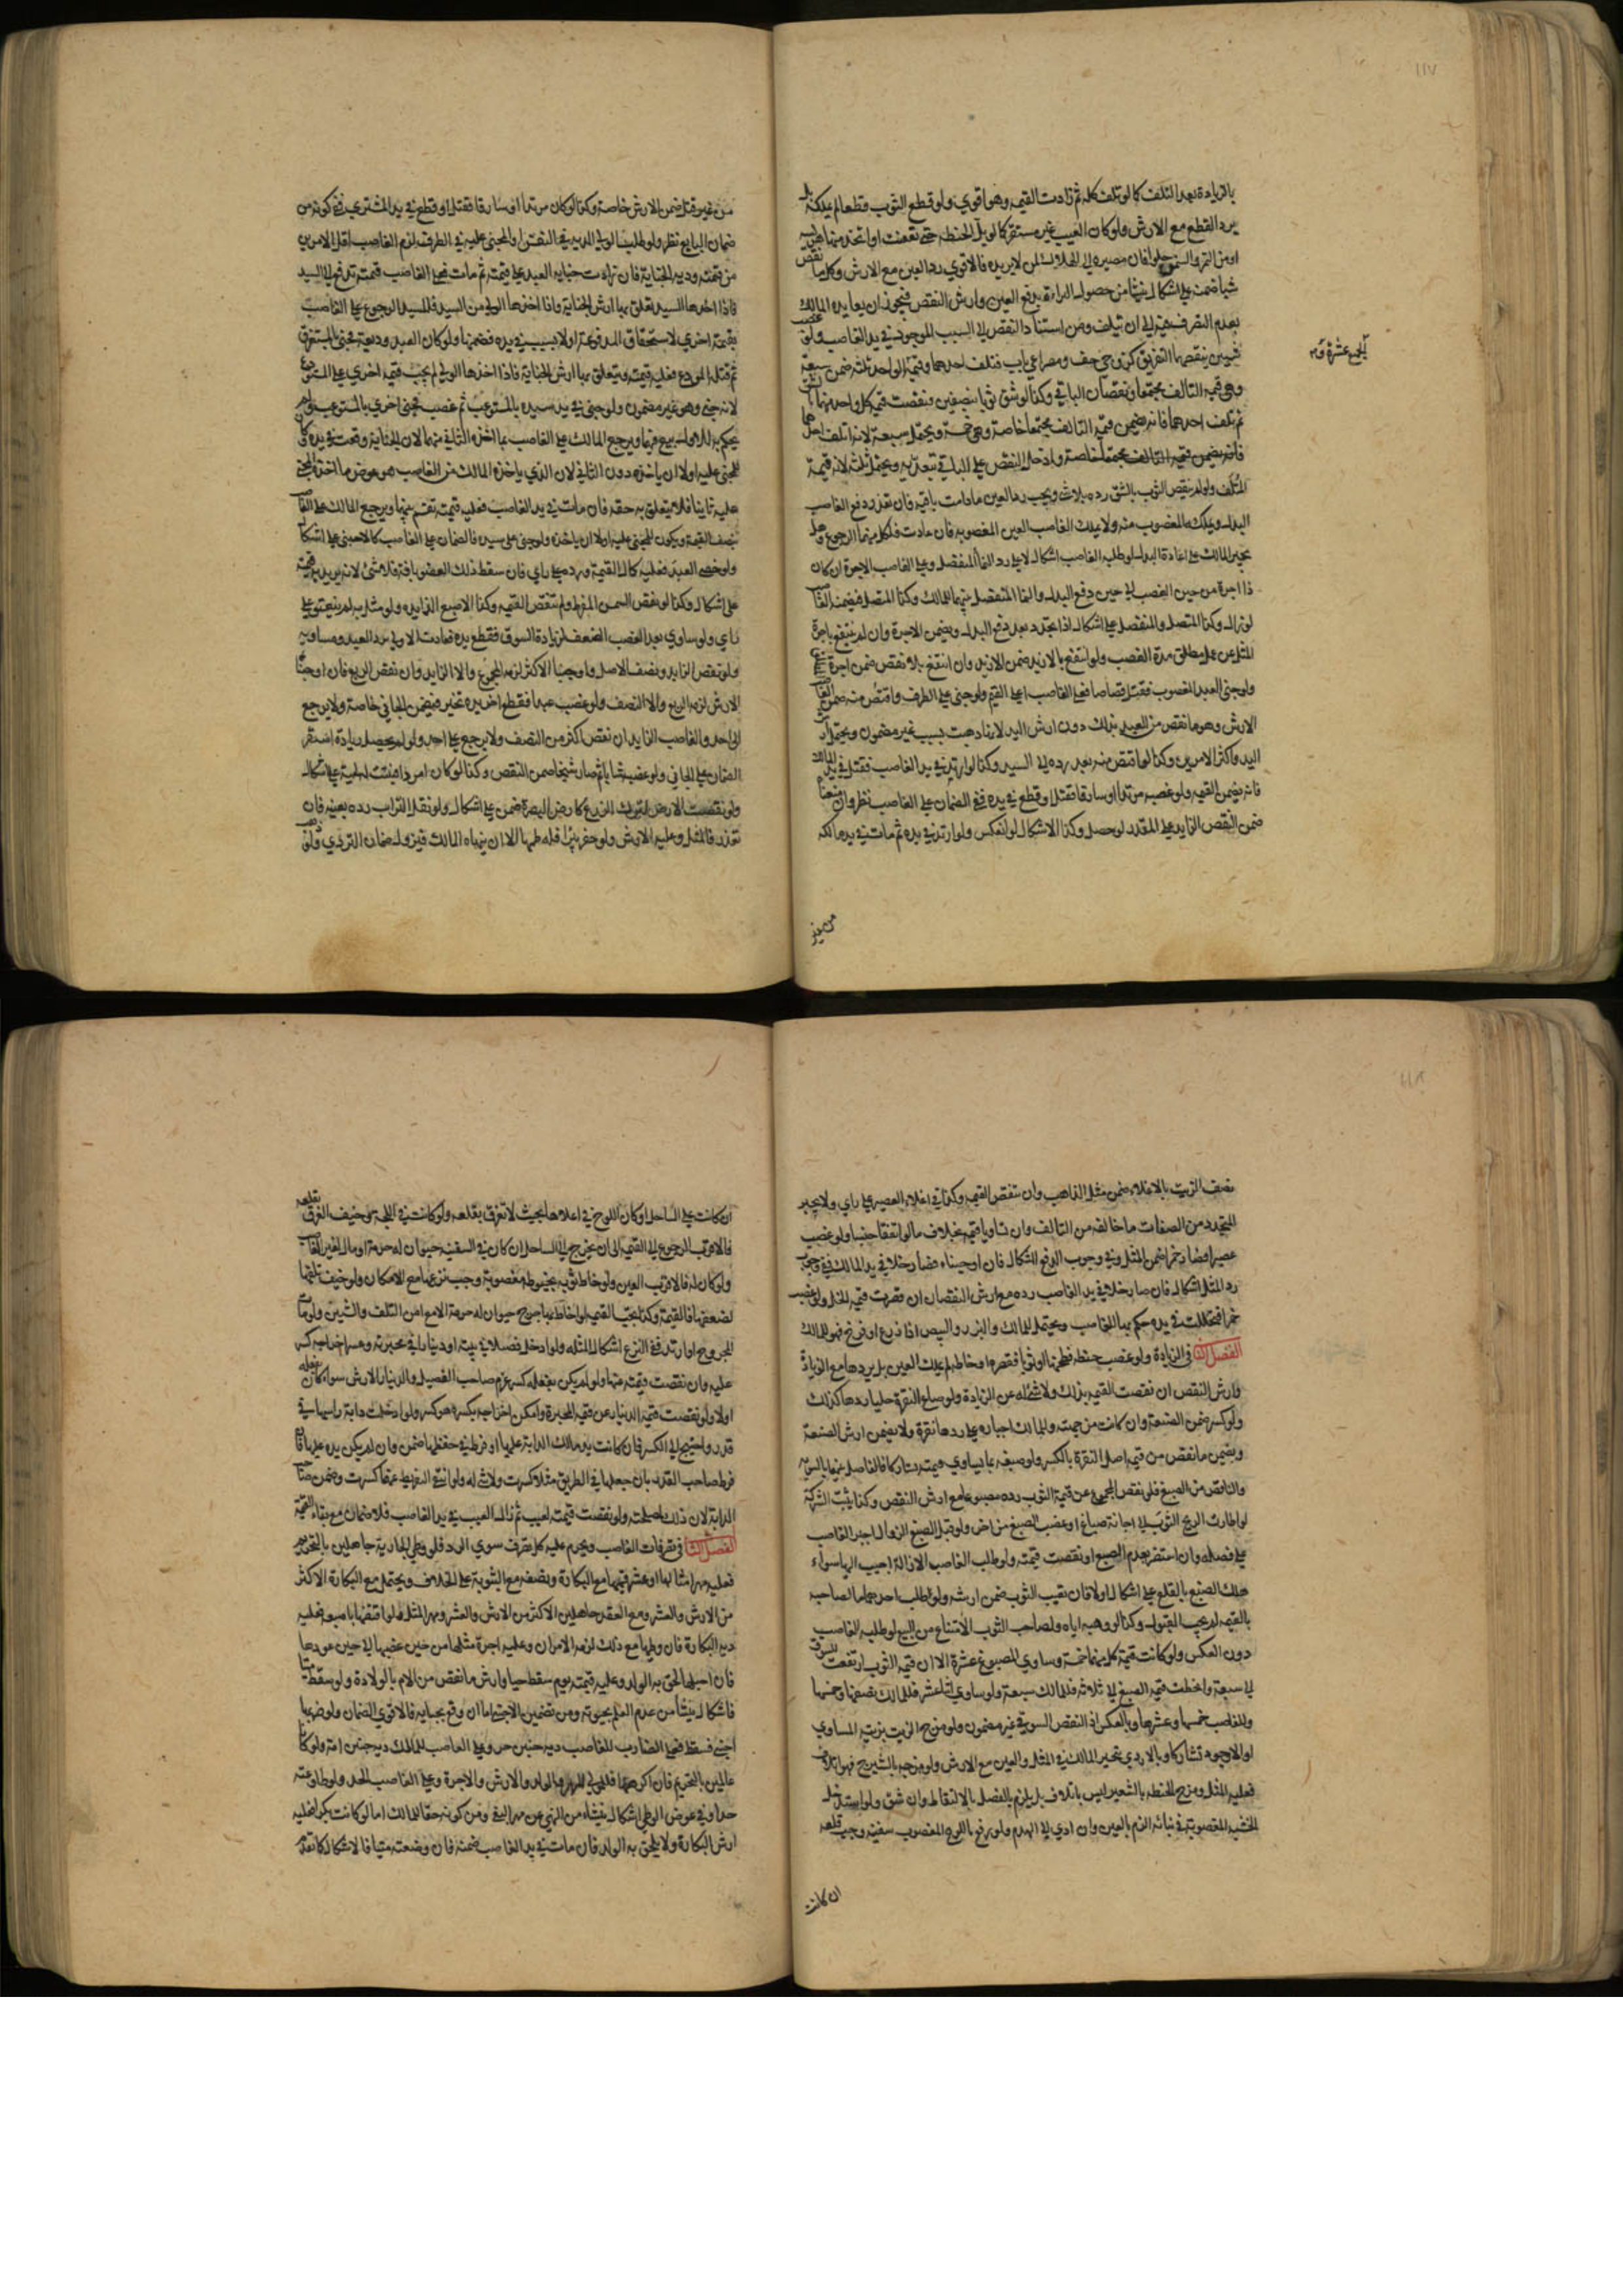 ١١٧
بالزيادة بعد التلف كما لو تلف كله ثم زادت القيمه وهو اقوي ولو قطع الثوب قطعا لم يملكه بل
يرد القطع مع الارش ولو كان العيب غير مستقر كما لو بل الحنطه حتى تعفنت او اتخذ منها هريسه
او من التمر والسمن حلوا فان مصيره الى الهلاك لمن لا يريده فالاقوي رد العين مع الارش وكلما نقص
شيا ضمنه على اشكال ينشأ من حصول البراءة بدفع العين وارش النقص فيجوز ان يعانده المالك
بعدم التصرف فيه الى ان يتلف ومن استناد النقص الى السبب الموجود في يد الغاصب ولو غصب
شيين ينقصهما التفريق كزوجي خف ومصراعي باب فتلف احدهما وقيمة الواحد ثلثه ضمن سبعة
الجميع عشرة و
وهي قيمه التالف مجتمعا ونقصان الباقي وكذا لو شق ثوبا نصفين فنقصت قيمة كل واحد منهما
ثم تلف احدهما فانه يضمن قيمه التالف مجتمعا خاصة وهي خمسة ويحتمل سبعة لانه اتلف احدهما
فانه يضمن قيمه التالف مجتمعا خاصة وادخل النقص على الباقي بتعديه ويحتمل ثلثه لانه قيمة
المتلف ولو لم ينقص الثوب بالشق رده بلا شي ويجب رد العين ما دامت باقيه فان تعذر دفع الغاصب
البدل ويملكه المغصوب منه ولا يملك الغاصب العين المغصوبه فان عادت فلكل منهما الرجوع وهل
يجبر المالك على اعادة البدل لو طلبه الغاصب اشكال لا على رد النما المنفصل وعلى الغاصب الاجرة ان كان
ذا اجرة من حين الغصب الى حين دفع البدل والنما المنفصل بينهما للمالك وكذا المتصل فيضمنه الغاصب
لو زال وكذا المتصل والمنفصل على اشكال اذا تجدد بعد دفع البدل ويضمن الاجرة وان لم ينتفع باجرة
المثل عن عمل مطلق مدة الغصب ولو انتفع بالازيد ضمن الازيد وان انتفع بالانقص ضمن اجرة
ولو جنى العبد المغصوب فقتل قصاصا فعلى الغاصب اعلى القيم ولو جنى على الطرف واقتص منه ضمن الغاصب
الارش وهو ما نقص من العبد بذلك دون ارش اليد لانها ذهبت بسبب غير مضمون ويحتمل ارش
اليد واكثر الامرين وكذا لو اقتص منه بعد رده الى السيد وكذا لو ارتد في يد الغاصب فقتل في يد المالك
فانه يضمن القيمه ولو غصبه مرتدا او سارقا فقتل او قطع في يده ففي الضمان على الغاصب نظر وان
ضمن النقص الزايد على المقدر لو حصل وكذا الاشكال لو انعكس ولو ارتد في يده ثم مات في يد مالكه
من غير
من غير قتل ضمن الارش خاصة وكذا لو كان مرتدا او سارقا فقتل او قطع في يد المشتري ففي كونه من
ضمان البايع نظر ولو طلب الولي الديه في النفس او المجنى عليه في الطرف لزم الغاصب اقل الامرين
من قيمته ودية الجناية فان زادت جنايه العبد على قيمته ثم مات فعلى الغاصب قيمته تدفع الى السيد
فاذا اخذها السيد تعلق بها ارش الجناية واذا اخذها الولي من السيد فللسيد الرجوع على الغاصب
بقيمة اخري لاستحقاق المدفوعة اولا بسبب في يده فضمنها ولو كان العبد وديعة فجنى بالمستغرق
ثم قتله المودع فعليه قيمته ويتعلق بها ارش الجناية فاذا اخذها الولي لم يجب قيمه اخري على المستودع
لانه جنى وهو غير مضمون ولو جنى في يد سيده بالمستوعب ثم غصب فجنى اخري بالمستوعب ولم
يحكم به للاول بيع فيهما ويرجع المالك على الغاصب بما اخذه الثاني منهما لان الجناية وقعت في يده وكان
للمجنى عليه اولا ان ياخذه دون الثاني لان الذي ياخذه المالك من الغاصب هو عوض ما اخذه المجنى
عليه ثانيا فلا يتعلق به حقه فان مات في يد الغاصب فعليه قيمته تقسم بينهما ويرجع المالك على الغاصب
بنصف القيمه ويكون للمجنى عليه اولا ان ياخذه ولو جنى على سيده فالضمان على الغاصب كالاجنبي على اشكال
ولو خصى العبد فعليه كمال القيمة ورده على راي فان سقط ذلك العضو بافة فلا شئ لانه يزيد به قيمته
على اشكال وكذا لو نقص السمن المفرط ولم تنقص القيمه وكذا الاصبع الزايده ولو مثل به لم ينعتق على
راي ولو ساوي بعد الغصب الضعف لزيادة السوق فقطع يده فعادت الاولى رد العبد ومساويه
ولو نقص الزايد ونصف الاصل واوجبنا الاكثر لزمه المجموع والا الزايد وان نقص الربع فان اوجبنا
الارش لزمه الربع والا النصف ولو غصب عبدا فقطع اخر يده تخير فيضمن الجاني خاصة ولا يرجع
الى احد والغاصب الزايد ان نقص اكثر من النصف ولا يرجع على احد ولو لم يحصل زيادة استقر
الضمان على الجاني ولو غصب شابا ثم صار شيخا ضمن النقص وكذا لو كان امرد فنبتت لحيته على اشكال
ولو نقصت الارض لترك الزرع كارض البصرة ضمن على اشكال ولو نقل التراب رده بعينه فان
تعذر فالمثل وعليه الارش ولو حفر بئرا فله طمها الا ان ينهاه المالك فيزول ضمان التردي ولو
١١٨
نصف الزيت بالاغلاء ضمن مثل الذاهب وان لم تنقص القيمه وكذا في اغلاء العصير على راي ولا يجبر
المتجدد من الصفات ما خالفه من التالف وان تساويا قيمه بخلاف ما لو اتفقا جنسا ولو غصب
عصيرا فصار خمرا ضمن المثل وفي وجوب الدفع اشكال فان اوجبناه فصار خلا في يد المالك ففي وجوب
رد المثل اشكال فان صار خلا في يد الغاصب رده مع ارش النقصان ان قصرت قيمه الخل ولو غصب
خمرا فتخللت في يده حكم بها للغاصب ويحتمل للمالك والبذر والبيض اذا زرع او فرخ فهو للمالك
الفصل الثاني في الزيادة ولو غصب حنطه فطحنها او ثوبا فقصره او خاطه لم يملك العين بل يردها مع الزيادة
وارش النقص ان نقصت القيمه بذلك ولا شئ له عن الزيادة ولو صاغ النقرة حليا ردها كذلك
ولو كسر ضمن الصنعة وان كانت من جهته وللمالك اجباره على ردها نقرة ولا يضمن ارش الصنعة
ويضمن ما نقص من قيمه اصل النقرة بالكسر ولو صبغه بما يساوي قيمته تشاركا فالفاضل بينهما بالسويه
والناقص من الصبغ فلو نقص المجموع عن قيمة الثوب رده مصبوغا مع ارش النقص وكذا يثبت الشركة
لو اطارت الريح الثوب الى اجانة صباغ او غصب الصبغ من اخر ولو قبل الصبغ الزوال اجبر الغاصب
على فصله وان استضر بعدم الصبغ او نقصت قيمته ولو طلب الغاصب الازالة اجيب اليها سواء
هلك الصبغ بالقلع على اشكال او لا فان تعيب الثوب ضمن ارشه ولو طلب احدهما ما لصاحبه
بالقيمه لم يجب القبول وكذا لو وهبه اياه ولصاحب الثوب الامتناع من البيع لو طلبه الغاصب
دون العكس ولو كانت قيمة كل منهما خمسة وساوي المصبوغ عشرة الا ان قيمه الثوب ارتفعت للسوق
الى سبعة وانحطت قيمه الصبغ الى ثلاثه فللمالك سبعة ولو ساوي اثنا عشر فللمالك نصفها وخمسها
وللغاصب خمسها وعشرها وبالعكس اذ النقص السوقي غير مضمون ولو مزج الزيت بزيته المساوي
او الاجود تشاركا وبالاردي تخير المالك في المثل والعين مع الارش ولو مزجه بالشيرج فهو اتلاف
فعليه المثل ومزج الحنطه بالشعير ليس باتلاف بل يلزم بالفصل بالالتقاط وان شق ولو استدخل
الخشبه المغصوبة في بنائه الزم بالعين وان ادي الى الهدم ولو رقع باللوح المغصوب سفينة وجب قلعه
ان كانت
ان كانت على الساحل او كان اللوح في اعلاها بحيث لا تغرق بقلعه ولو كانت في اللجة وخيف الغرق بقلعه
فالاقرب الرجوع الى القيمه الى ان يخرج الى الساحل ان كان في السفينه حيوان له حرمة او مال لغير الغاصب
ولو كان له فالاقرب العين ولو خاط ثوبه بخيوط مغصوبة وجب نزعها مع الامكان ولو خيف تلفها
لضعفها فالقيمة وكذا يجب القيمه لو خاط بها جرح حيوان له حرمة الا مع امن التلف والشين ولو مات
المجروح او ارتد ففي النزع اشكال للمثله ولو ادخل فصيلا في بيته او دينارا في محبرته وعسر اخراجه كسر
عليه وان نقصت قيمته عنهما ولو لم يكن بفعله كسر غرم صاحب الفصيل والدينار الارش سواء كان بفعله
اولا ولو نقصت قيمه الدينار عن قيمه المحبرة وامكن اخراجه بكسره كسر ولو ادخلت دابة راسها في
قدر واحتيج الى الكسر فان كانت يد مالك الدابة عليها او فرط في حفظها ضمن وان لم يكن يده عليها فان
فرط صاحب القدر بان جعلها في الطريق مثلا كسرت ولا شي له ولو انتفى التفريط عنهما كسرت وضمن صاحب
الدابة لان ذلك لمصلحته ولو نقصت قيمته لعيب ثم زال العيب في يد الغاصب فلا ضمان مع بقاء القيمة
الفصل الثالث في تصرفات الغاصب ويحرم عليه كل تصرف سوي الرد فلو وطي الجارية جاهلين بالتحريم
فعليه مهر امثالها او عشر قيمتها مع البكارة ونصفه مع الثيوبة على الخلاف ويحتمل مع البكارة الاكثر
من الارش والعشر ومع العقد جاهلين الاكثر من الارش والعشر ومهر المثل فلو افتضها باصبعه فعليه
دية البكارة فان وطيها مع ذلك لزمه الامران وعليه اجرة مثلها من حين غصبها الى حين عودها
فان احبلها لحق به الولد وعليه قيمته يوم سقط حيا وارش ما نقص من الام بالولادة ولو سقط ميتا
فاشكال ينشأ من عدم العلم بحيوته ومن تضمين الاجنبي اما ان وقع بجنايه فالاقوي الضمان ولو ضربها
اجنبي فسقط فعلى الضارب للغاصب ديه جنين حر وعلى الغاصب للمالك ديه جنين امة ولو كانا
عالمين بالتحريم فان اكرهها فللمولى المهر والولد والارش والاجرة وعلى الغاصب الحد ولو طاوعته
حدا وفي عوض الوطي اشكال ينشاء من النهي عن مهر البغي ومن كونه حقا للمالك اما لو كانت بكرا فعليه
ارش البكارة ولا يلحق به الولد فان مات في يد الغاصب ضمنه فان وضعته ميتا فالاشكال كما تقدم